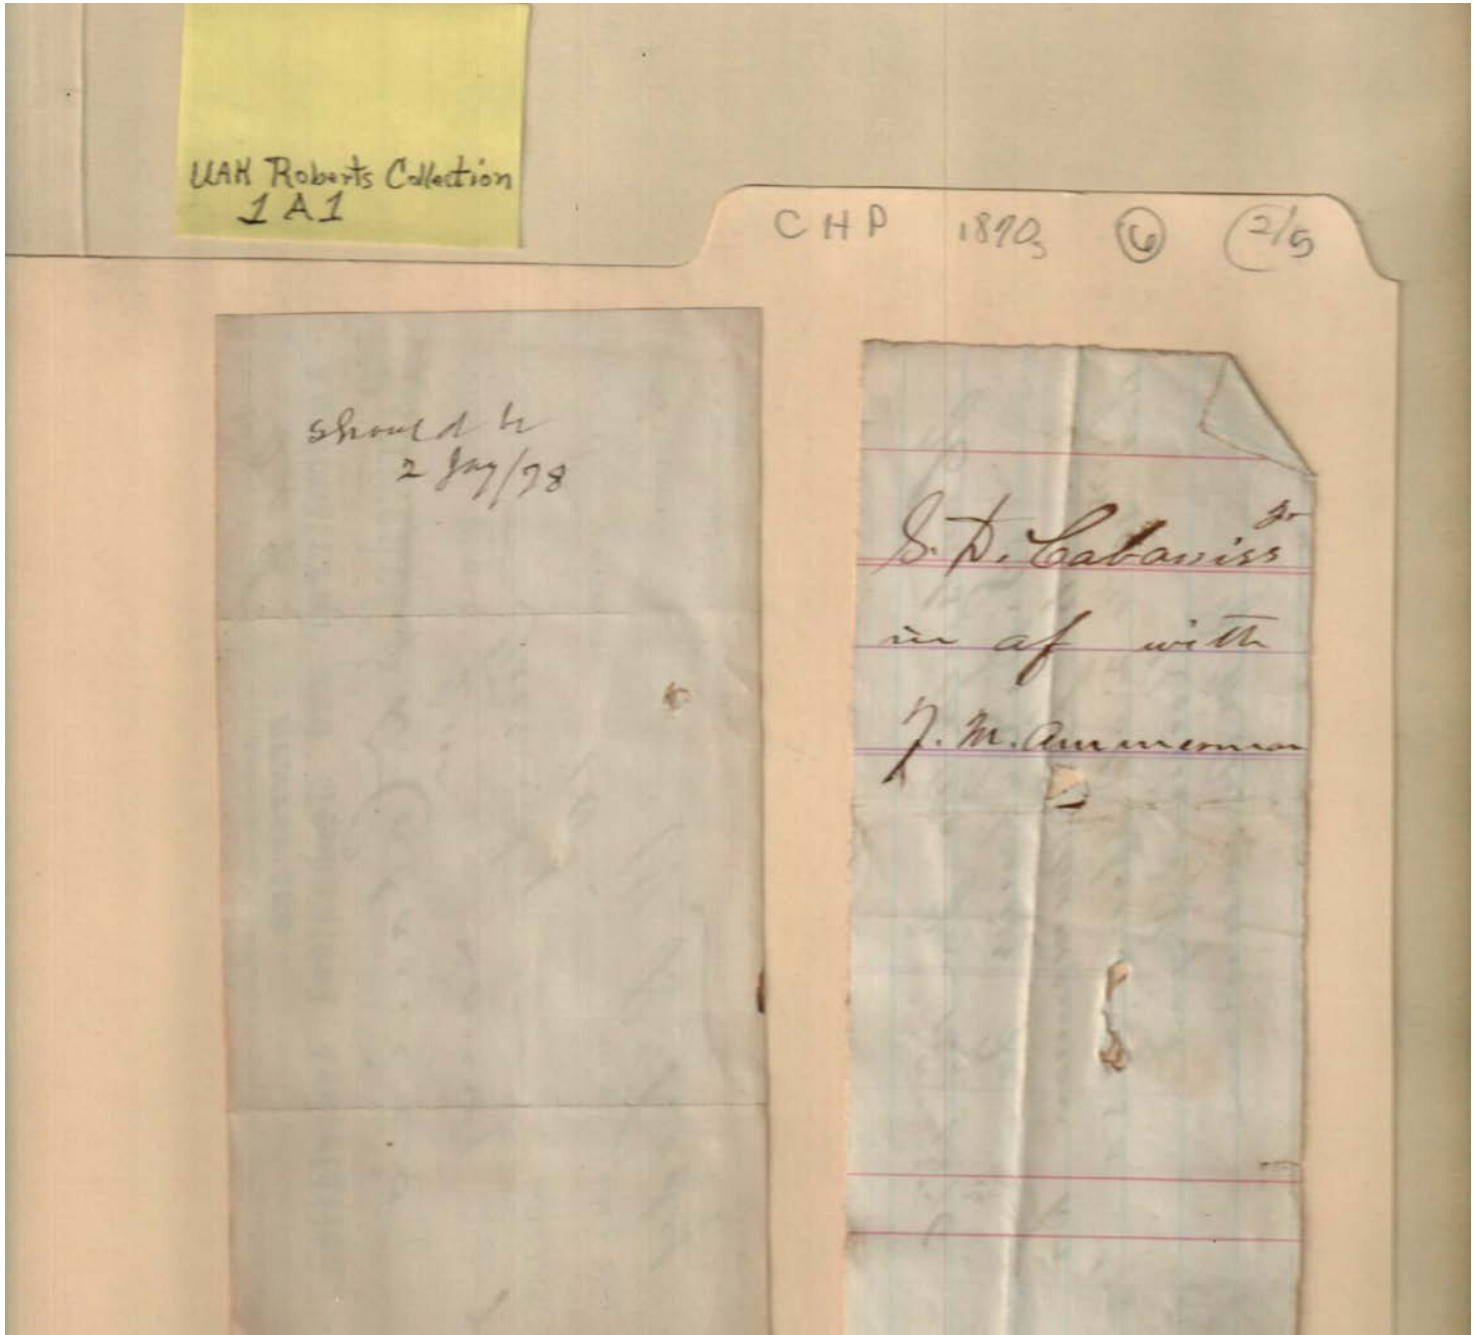 UAH Roberts Collection
1 A 1
CHP 1870s 6 2/5
should be
2 Jay/78
S. D. Cabaniss Jr
in a/ with
J. M. Ammerman